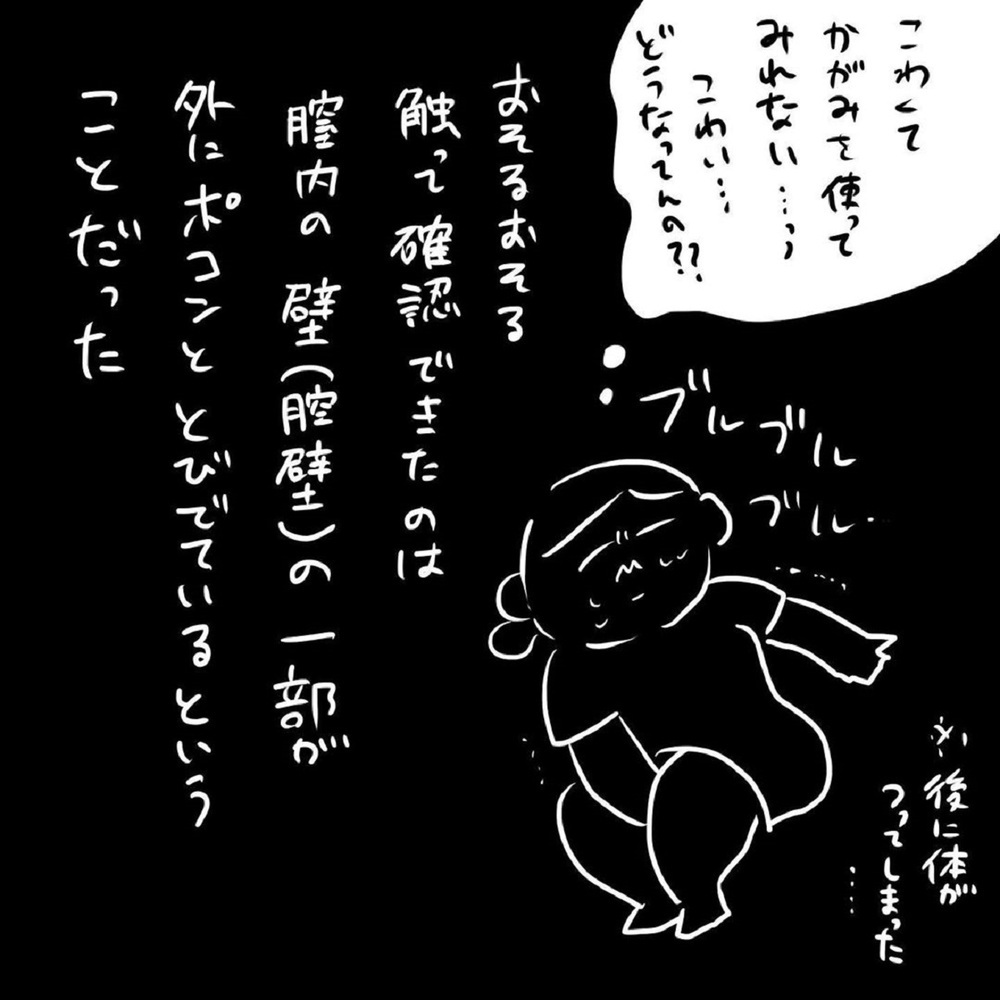 こわくて
かがみを使って
みれない…っ
こわい…
どうなってんの??
ブルブル
ブル…
おそるおそる
触って確認できたのは
膣内の壁(膣壁)の一部が
外にポコンととびでているという
ことだった
※後に体が
つってしまった
……